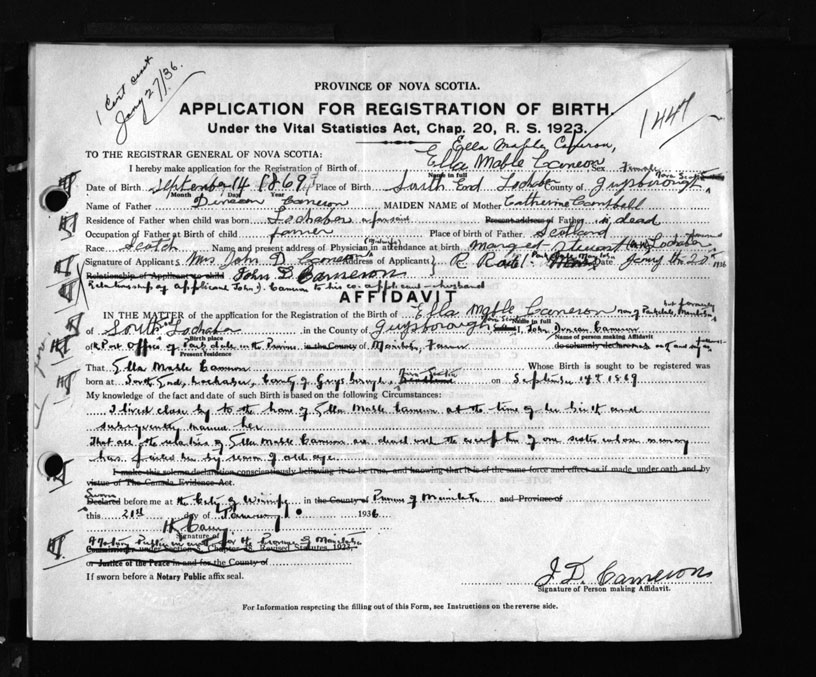 1 Cert sent
Jany 27/36.
1447
PROVINCE OF NOVA SCOTIA.
APPLICATION FOR REGISTRATION OF BIRTH.
Under the Vital Statistics Act, Chap. 20, R. S. 1923.
Ella Mable Cameron,
TO THE REGISTRAR GENERAL OF NOVA SCOTIA:
I hereby make application for the Registration of Birth of Ella Mable Cameron Sex Female
Name in full
Date of Birth September 14 1869 Place of Birth South End Lochaber County of Guysborough Nova Scotia
Month Day Year
Name of Father Duncan Cameron MAIDEN NAME of Mother Catherine Campbell
Residence of Father when child was born Lochaber Present address of Father is dead
Occupation of Father at Birth of child farmer Place of birth of Father Scotland
Race Scotch Name and present address of Physician in attendance at birth Stewart Lochaber
Signature of Applicant Mrs John D Cameron Address of Applicant R R No 1 Date Jany the 20th 1936
John D. Cameron
Relationship of Applicant to child
Relationship of Applicant John D. Cameron to his co-applicant - husband
AFFIDAVIT
IN THE MATTER of the application for the Registration of Birth of Ella Mable Cameron now of Manitoba but formerly
Name in full
of South End Lochaber in the County of Guysborough I, John Duncan Cameron
Birth place Name of person making Affidavit
of Post Office of in the Province in the County of Manitoba, Farmer do solemnly declare
Present Residence
That Ella Mable Cameron Whose Birth is sought to be registered was
born at South End, Lochaber, County of Guysborough, Nova Scotia on September 14th 1869
My knowledge of the fact and date of such Birth is based on the following Circumstances:
I lived close by to the home of Ella Mable Cameron at the time of her birth and
subsequently married her.
That all the relatives of Ella Mable Cameron are dead with the exception of one sister whose memory
has failed her by reason of old age.
I make this solemn declaration conscientiously believing it to be true, and knowing that it is of the same force and effect as if made under oath and by
virtue of The Canada Evidence Act.
Sworn
Declared before me at the City of Winnipeg in the County of Province of Manitoba and Province of
this 21st day of January 1936
Signature of
A Notary Public in and for the Province of Manitoba
or Justice of the Peace in and for the County of
If sworn before a Notary Public affix seal.
J. D. Cameron
Signature of Person making Affidavit.
For Information respecting the filling out of this Form, see Instructions on the reverse side.